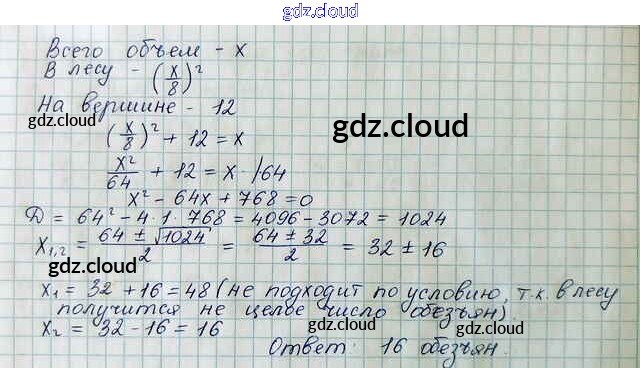 gdz.cloud
Всего объем - x
В лесу - (x/8)²
На вершине - 12
gdz.cloud
gdz.cloud
(x/8)² + 12 = x
x²/64 + 12 = x · /64
x² - 64x + 768 = 0
Д = 64² - 4 · 1 · 768 = 4096 - 3072 = 1024
x₁,₂ = (64 ± √1024)/2 = (64 ± 32)/2 = 32 ± 16
gdz.cloud
gdz.cloud
x₁ = 32 + 16 = 48 (не подходит по условию, т.к. в лесу
получится не целое число обезьян).
x₂ = 32 - 16 = 16
gdz.cloud
gdz.cloud
Ответ: 16 обезьян.